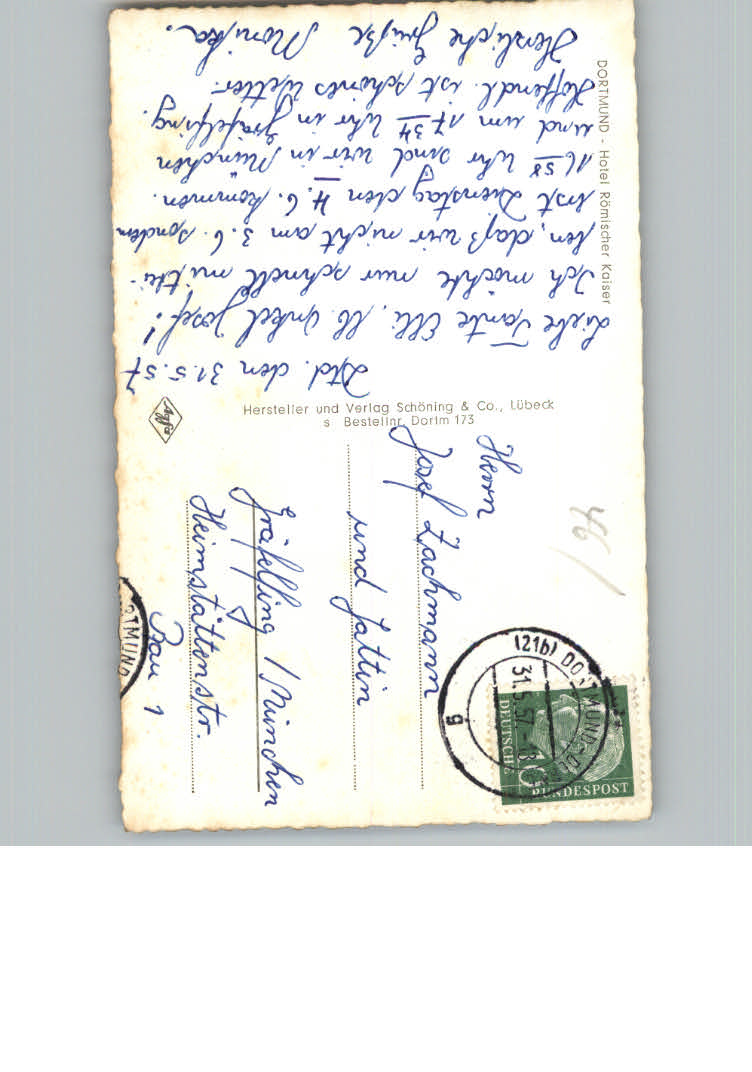 DORTMUND - Hotel Römischer Kaiser
Dtd. den 31.5.57
Liebe Tante Elli, lb. Onkel Josef!
Ich möchte nur schnell mittei-
len, daß wir nicht am 3.6. sondern
erst Dienstag den 4.6. kommen.
16 58 Uhr sind wir in München
und um 17 34 Uhr in Gräfelfing.
Hoffentl. ist schönes Wetter.
Herzliche Grüße Monika.
Hersteller und Verlag Schöning & Co., Lübeck
s Bestellnr. Dortm 173
Agfa
Herrn
Josef Zachmann
und Gattin
Gräfelfing / München
Heimstättenstr.
Bau 1
46/
(21b) DORTMUND
31.5.57-18
g
DEUTSCHE
BUNDESPOST
RTMUND